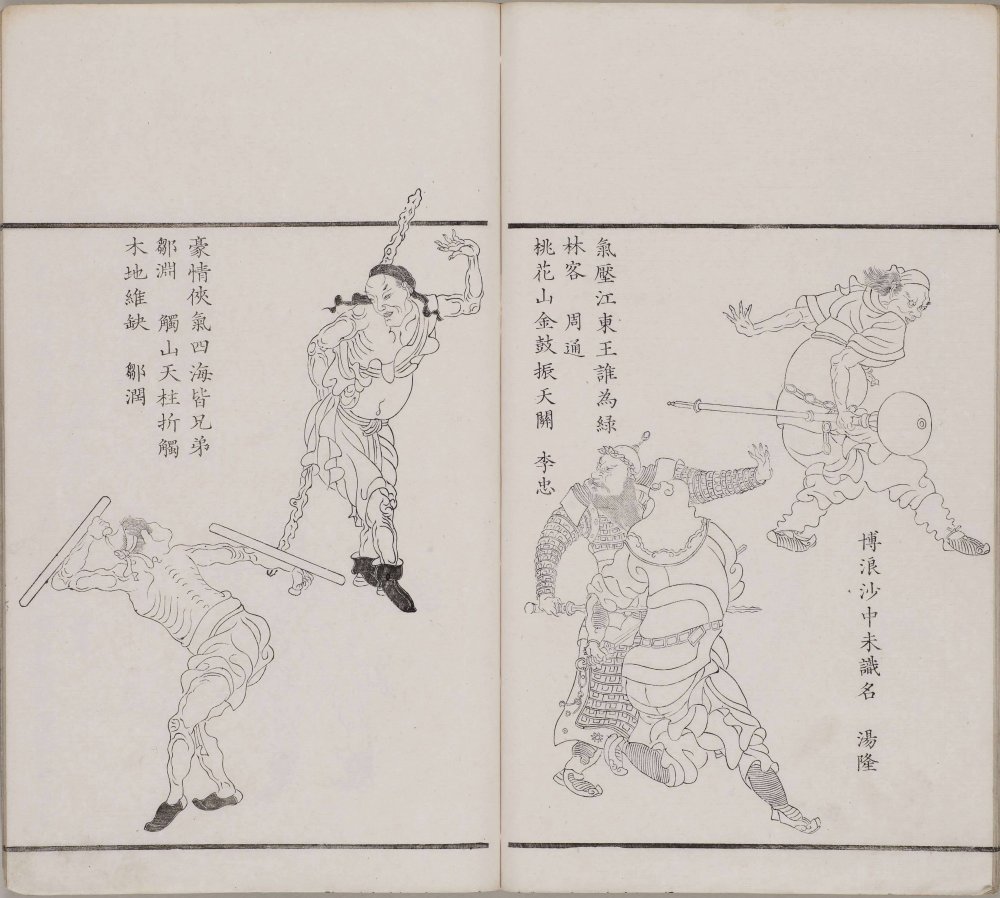 博浪沙中未識名　湯隆
氣壓江東王誰為綠
林客　周通
桃花山金鼓振天關　李忠
豪情俠氣四海皆兄弟
鄒淵　觸山天柱折觸
木地維缺　鄒潤